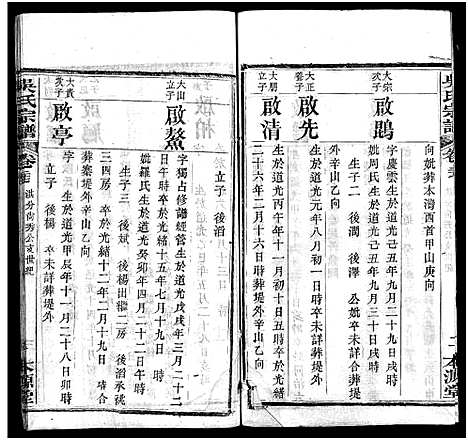 吳氏宗譜
本源堂
向妣葬本灣西首甲山庚向
大宗次子
啟鵾
字慶雲生於道光十五年四月三日戌時
妣周氏生於道光十九年三月十三日戌時
生子二 後潤 後澤 公妣卒未詳葬堤
外辛山乙向
大正立子
啟先
生於道光元年八月初一日時卒未詳葬堤外
大朋立子
啟清
生於道光丙午年十一月初十丑時卒於光緒
二十六年二月十六日時葬堤外辛山乙向
立子 後滔
大山立子
啟鰲
字獨占修譜經營生於道光戊戌年三月二十二
日時 卒於光緒十五年七月十九日 時
妣羅氏生於道光癸卯年四月二十二日午時
生子三 後斌 後楊出繼二房 後滔承祧
大賓立子
啟亭
字 生於道光甲辰年十一月二十八日卯時
卒於光緒十二年二月十九日 時合
葬寨堤外辛山乙向
立子 後楊 卒未詳葬堤外
吳氏宗譜
卷
洪分尚秀公支世紀
本源堂